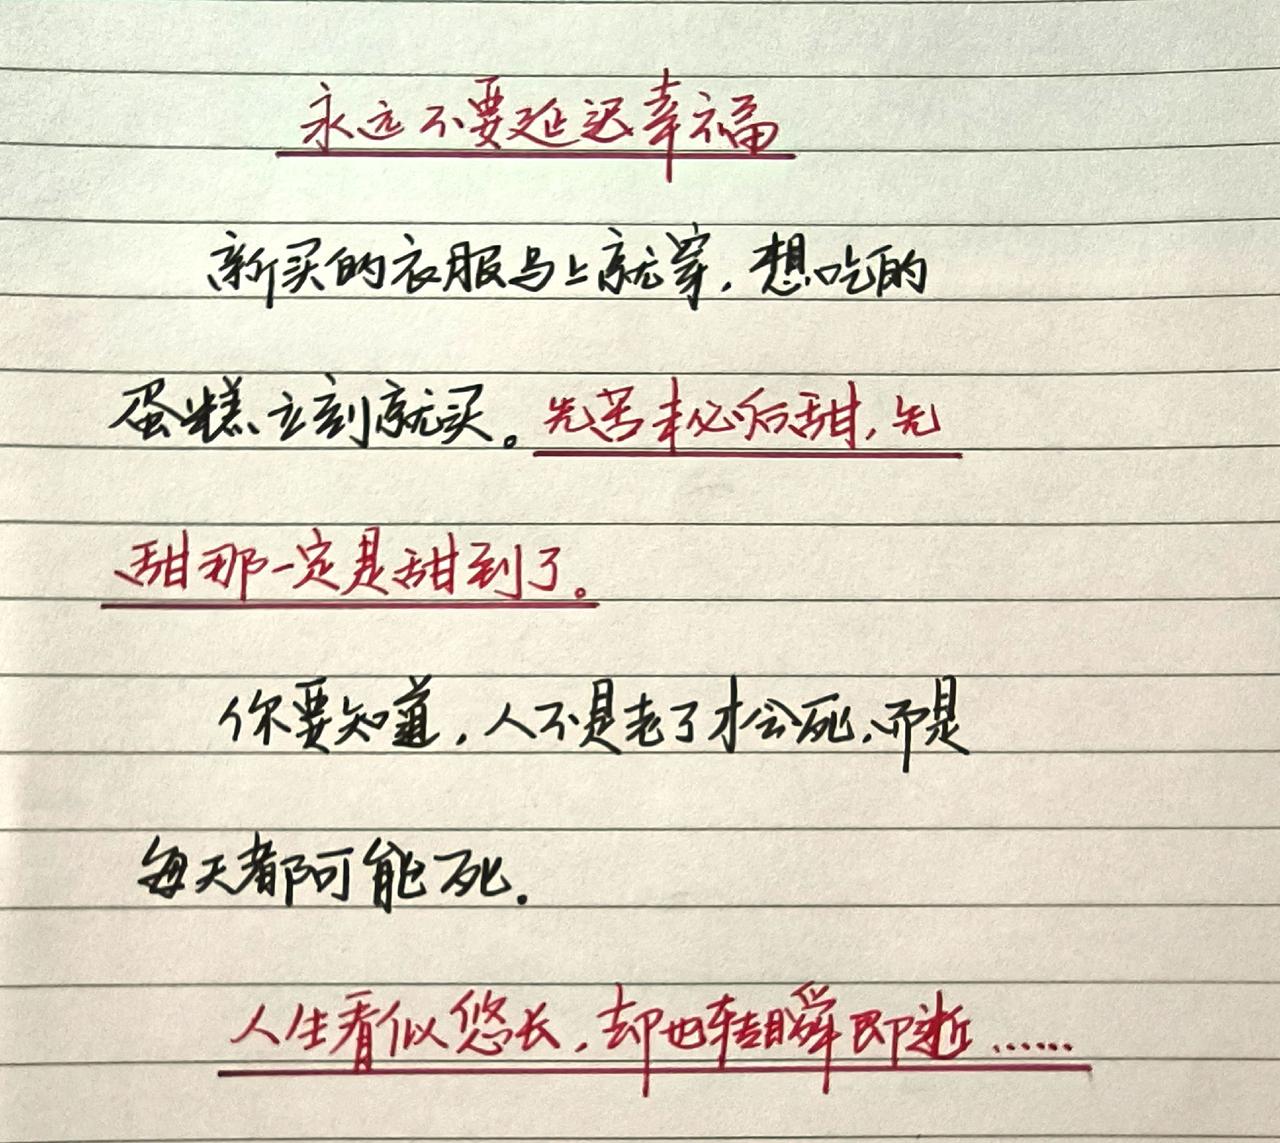 永远不要延迟幸福
新买的衣服马上就穿,想吃的
蛋糕立刻就买。先苦未必后甜,先
甜那一定是甜到了。
你要知道,人不是老了才会死,而是
每天都可能死.
人生看似悠长,却也转瞬即逝……